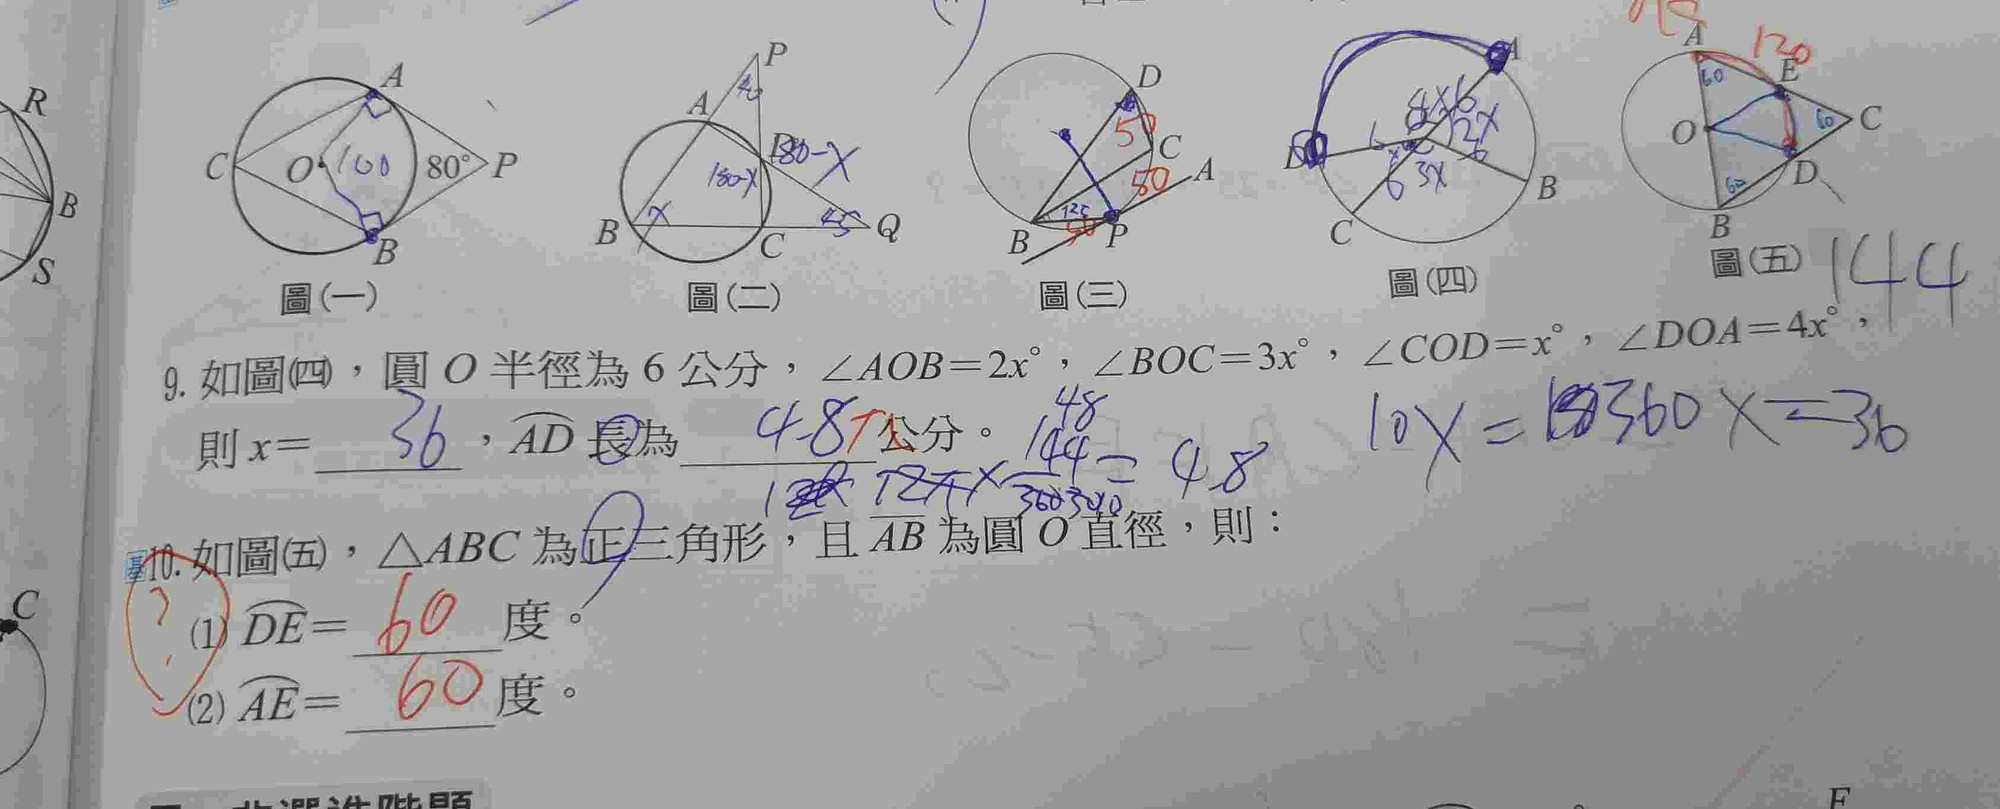 R
B
S
C
A
C
O
100
80°
P
B
圖(一)
P
A
180-x
180-x
x
45
B
C
Q
圖(二)
D
50
C
50
A
B
P
圖(三)
A
2x
3x
B
C
圖(四)
A
120
60
E
O
60
C
60
D
B
圖(五)
144
9. 如圖(四)，圓 O 半徑為 6 公分，∠AOB＝2x°，∠BOC＝3x°，∠COD＝x°，∠DOA＝4x°，
則 x＝ 36 ，AD 長為 4.8π 公分。
48
144
12π×
360
= 4.8
10x = 360 x = 36
基10. 如圖(五)，△ABC 為正三角形，且 AB 為圓 O 直徑，則：
?
(1) DE＝ 60 度。
(2) AE＝ 60 度。